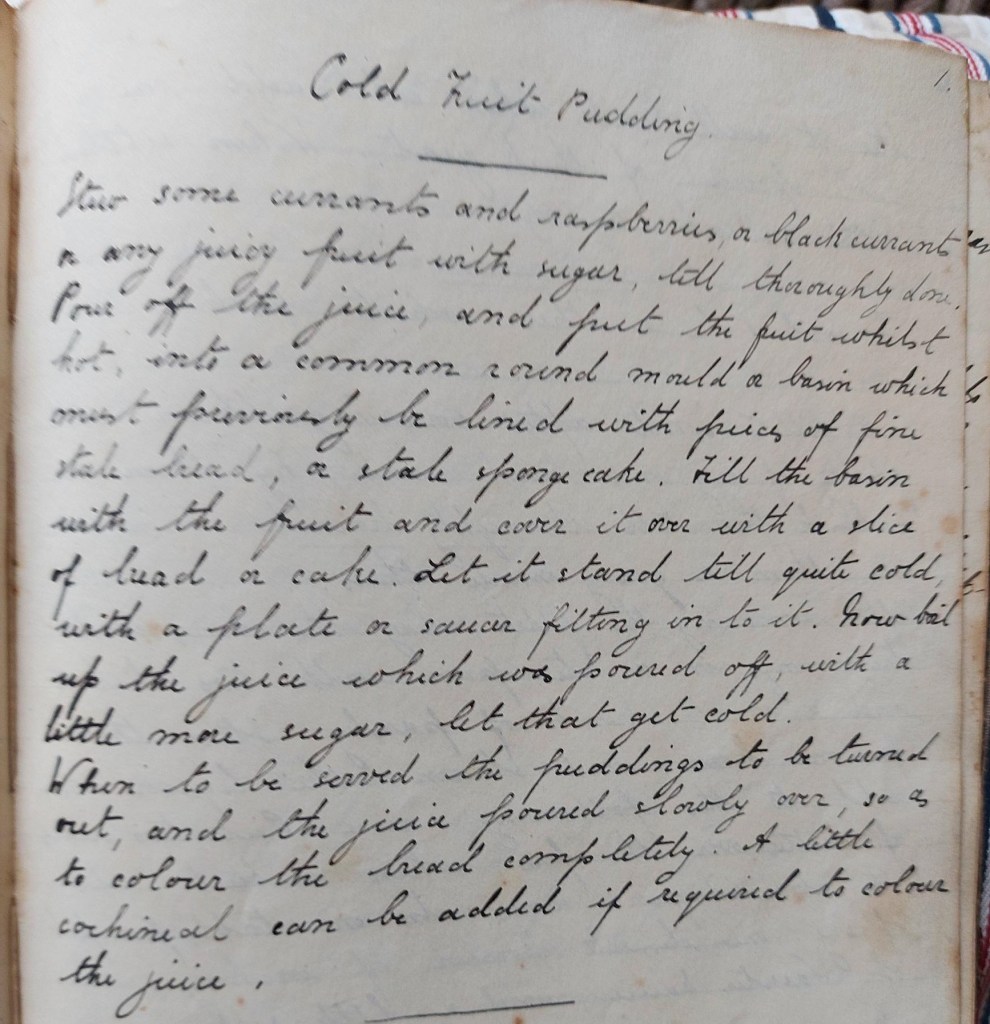 1.
Cold Fruit Pudding.
Stew some currants and raspberries, or black currants
or any juicy fruit with sugar, till thoroughly done.
Pour off the juice, and put the fruit whilst
hot, into a common round mould or basin which
must previously be lined with pieces of fine
stale bread, or stale sponge cake. Fill the basin
with the fruit and cover it over with a slice
of bread or cake. Let it stand till quite cold,
with a plate or saucer fitting in to it. Now boil
up the juice which was poured off, with a
little more sugar, let that get cold.
When to be served the puddings to be turned
out, and the juice poured slowly over, so as
to colour the bread completely. A little
cochineal can be added if required to colour
the juice.